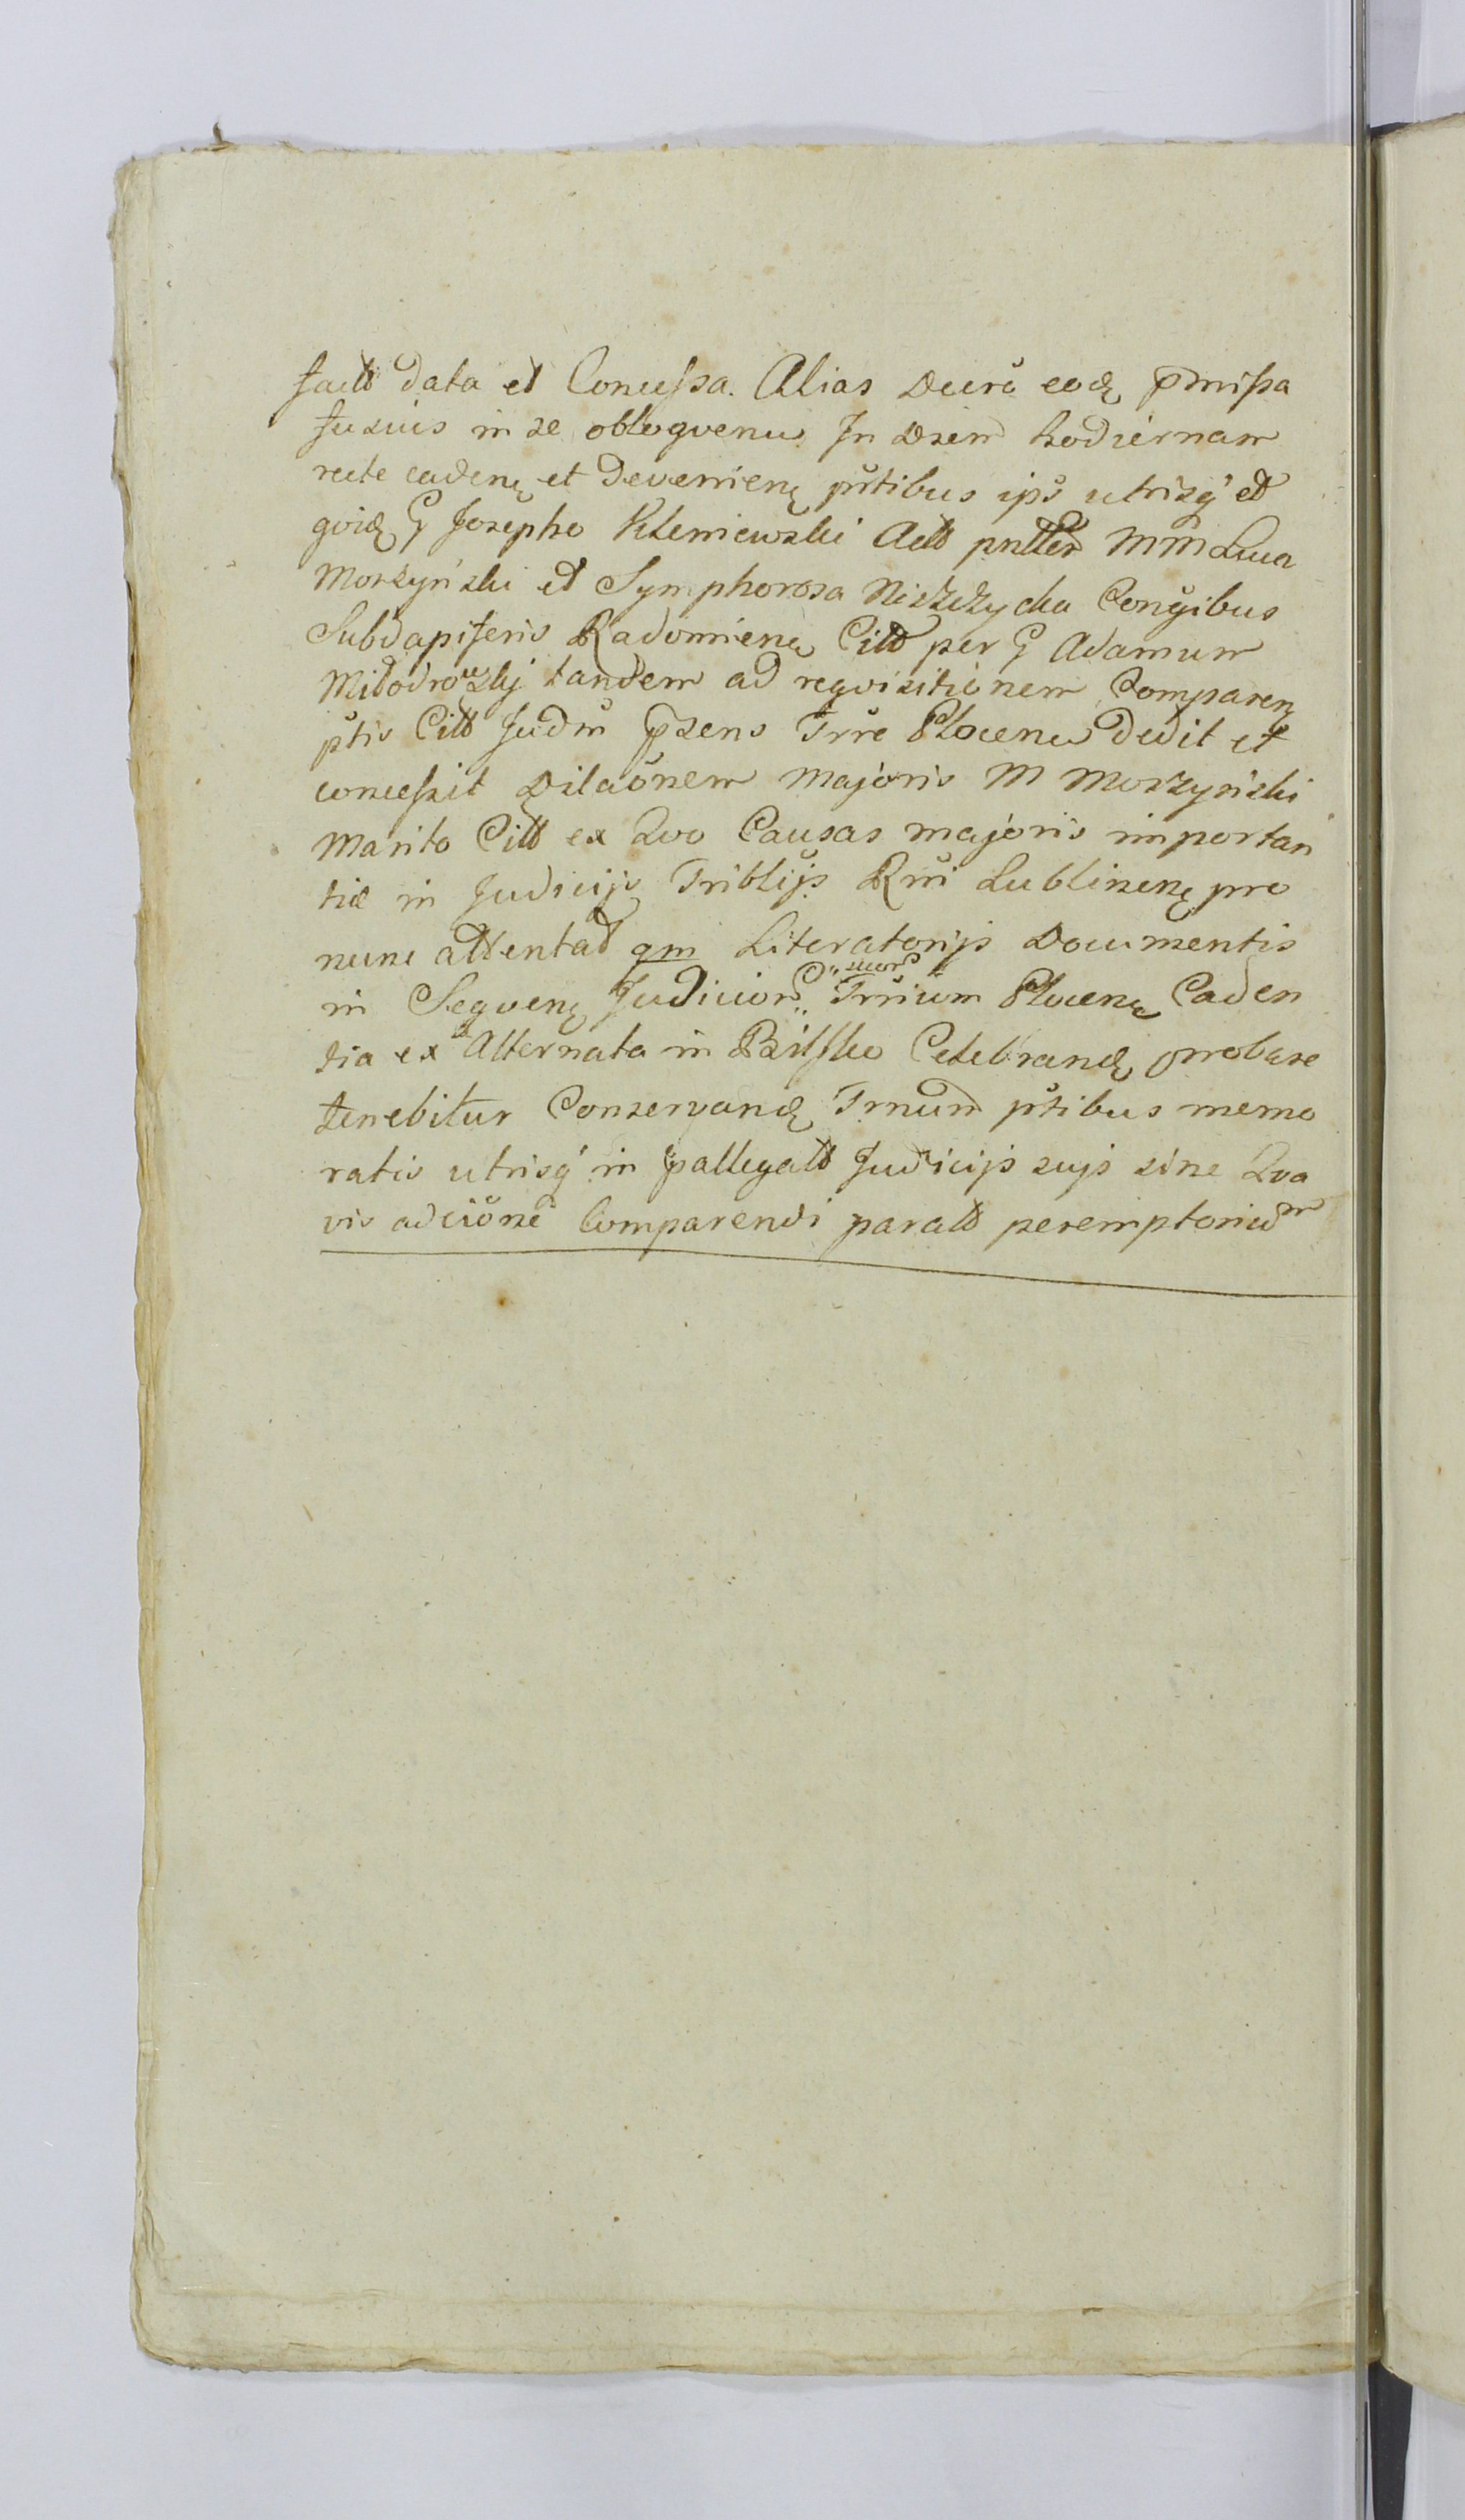 factt data et Concessa. Alias Decrŏ eodę p̄missa
fusius in se obloqvenus In Diem hodiernam
recte cadenę et Devenienę pŭtibus ips̆ utrisq́ et
qvidę G Josepho Kleniewski Actt pnller MM Luca
Morzyński et Symphorosa Niszczycka Conŭgibus
Subdapiferis Radomienę Citt per G Adamum
Milodrowskj tandem ad reqvisitionem Comparenę
pŭtis Citt Judm̆ p̄sens Trre Plocenę dedit et
concessit Dilaŏnem majoris M Morzyński
Marito Citt ex Qvo Causas majoris importan
tiæ in Judicijs Triblijs Rni Lublinenę pro
nunc attentat qm Literatorijs Documentis
in Seqvenę Judicior „suor„ Trrium Plocenę Caden
tia ex Alternata in Bilsko Celebrandę probare
tenebitur Conservandę Trnum pŭtibus memo
ratis utrisq́ in pallegatt Judicijs sujs sine Qva
vis adcitŏne Comparendi paratt peremptorium